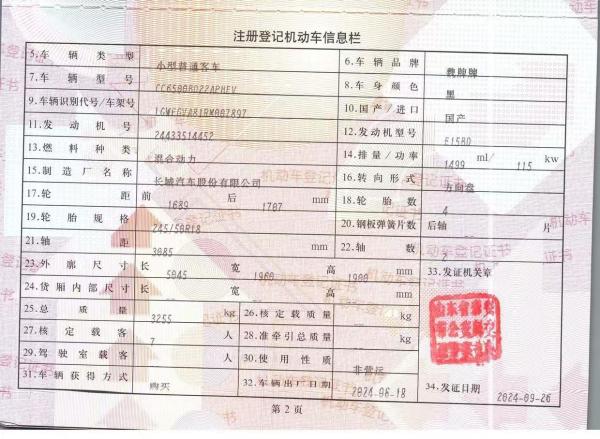 注册登记机动车信息栏
5.车辆类型 小型普通客车 6.车辆品牌 魏牌牌
7.车辆型号 CC6500BD22APHEV 8.车身颜色 黑
9.车辆识别代号/车架号 10.国产/进口 国产
11.发动机号 24433514452 12.发动机型号 E15BD
13.燃料种类 混合动力 14.排量/功率 1499 ml/ 115 kw
15.制造厂名称 长城汽车股份有限公司 16.转向形式 方向盘
17.轮距 前 1689 后 1707 mm 18.轮胎数 4
19.轮胎规格 245/50R18 20.钢板弹簧片数 后轴 片
21.轴距 3085 mm 22.轴数 2
23.外廓尺寸 长 5045 宽 1960 高 1900 mm 33.发证机关章
24.货厢内部尺寸 长 宽 高 mm
25.总质量 3255 kg 26.核定载质量 kg
27.核定载客 7 人 28.准牵引总质量 kg
29.驾驶室载客 人 30.使用性质 非营运
31.车辆获得方式 购买 32.车辆出厂日期 2024-06-18 34.发证日期 2024-09-26
第2页